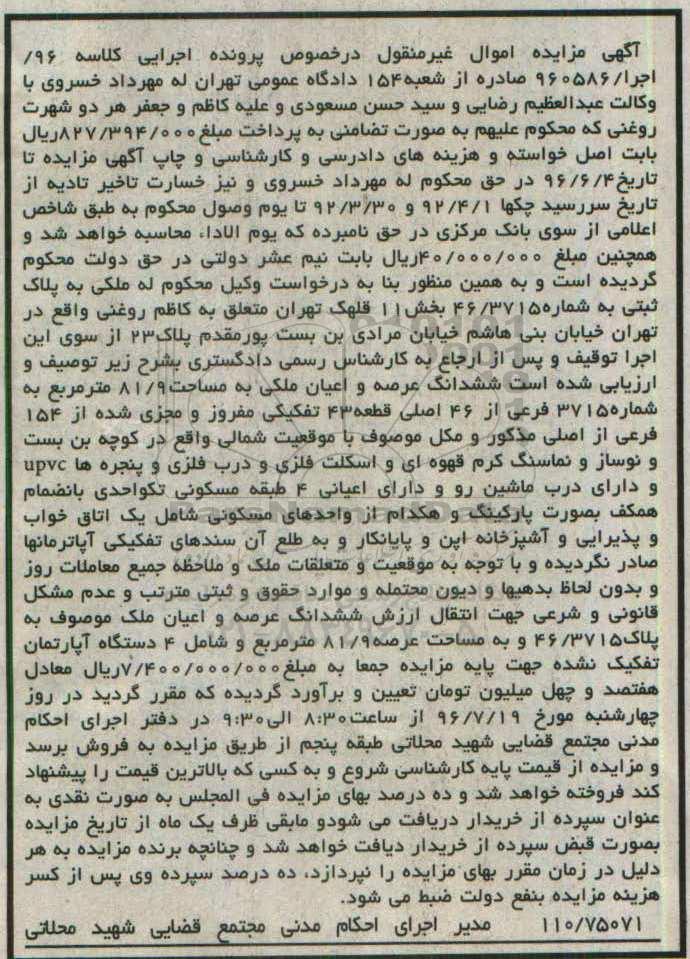 آگهی مزایده اموال غیرمنقول درخصوص پرونده اجرایی کلاسه ۹۶/
اجرا/۹۶۰۵۸۶ صادره از شعبه۱۵۴ دادگاه عمومی تهران له مهرداد خسروی با
وکالت عبدالعظیم رضایی و سید حسن مسعودی و علیه کاظم و جعفر هر دو شهرت
روغنی که محکوم علیهم به صورت تضامنی به پرداخت مبلغ۸۲۷/۳۹۴/۰۰۰ریال
بابت اصل خواسته و هزینه های دادرسی و کارشناسی و چاپ آگهی مزایده تا
تاریخ۹۶/۶/۴ در حق محکوم له مهرداد خسروی و نیز خسارت تاخیر تادیه از
تاریخ سررسید چکها ۹۲/۴/۱ و ۹۲/۳/۳۰ تا یوم وصول محکوم به طبق شاخص
اعلامی از سوی بانک مرکزی در حق نامبرده که یوم الاداء محاسبه خواهد شد و
همچنین مبلغ ۴۰/۰۰۰/۰۰۰ریال بابت نیم عشر دولتی در حق دولت محکوم
گردیده است و به همین منظور بنا به درخواست وکیل محکوم له ملکی به پلاک
ثبتی به شماره۴۶/۳۷۱۵ بخش۱۱ قلهک تهران متعلق به کاظم روغنی واقع در
تهران خیابان بنی هاشم خیابان مرادی بن بست پورمقدم پلاک۲۳ از سوی این
اجرا توقیف و پس از ارجاع به کارشناس رسمی دادگستری بشرح زیر توصیف و
ارزیابی شده است ششدانگ عرصه و اعیان ملکی به مساحت۸۱/۹ مترمربع به
شماره۳۷۱۵ فرعی از ۴۶ اصلی قطعه۴۳ تفکیکی مفروز و مجزی شده از ۱۵۴
فرعی از اصلی مذکور و مکل موصوف با موقعیت شمالی واقع در کوچه بن بست
و نوساز و نماسنگ کرم قهوه ای و اسکلت فلزی و درب فلزی و پنجره ها upvc
و دارای درب ماشین رو و دارای اعیانی ۴ طبقه مسکونی تکواحدی بانضمام
همکف بصورت پارکینگ و هکدام از واحدهای مسکونی شامل یک اتاق خواب
و پذیرایی و آشپزخانه اپن و پایانکار و به طلع آن سندهای تفکیکی آپاترمانها
صادر نگردیده و با توجه به موقعیت و متعلقات ملک و ملاحظه جمیع معاملات روز
و بدون لحاظ بدهیها و دیون محتمله و موارد حقوق و ثبتی مترتب و عدم مشکل
قانونی و شرعی جهت انتقال ارزش ششدانگ عرصه و اعیان ملک موصوف به
پلاک۴۶/۳۷۱۵ و به مساحت عرصه۸۱/۹ مترمربع و شامل ۴ دستگاه آپارتمان
تفکیک نشده جهت پایه مزایده جمعا به مبلغ۷/۴۰۰/۰۰۰/۰۰۰ریال معادل
هفتصد و چهل میلیون تومان تعیین و برآورد گردیده که مقرر گردید در روز
چهارشنبه مورخ ۹۶/۷/۱۹ از ساعت۸:۳۰ الی۹:۳۰ در دفتر اجرای احکام
مدنی مجتمع قضایی شهید محلاتی طبقه پنجم از طریق مزایده به فروش برسد
و مزایده از قیمت پایه کارشناسی شروع و به کسی که بالاترین قیمت را پیشنهاد
کند فروخته خواهد شد و ده درصد بهای مزایده فی المجلس به صورت نقدی به
عنوان سپرده از خریدار دریافت می شودو مابقی ظرف یک ماه از تاریخ مزایده
بصورت قبض سپرده از خریدار دیافت خواهد شد و چنانچه برنده مزایده به هر
دلیل در زمان مقرر بهای مزایده را نپردازد، ده درصد سپرده وی پس از کسر
هزینه مزایده بنفع دولت ضبط می شود.
۱۱۰/۷۵۰۷۱ مدیر اجرای احکام مدنی مجتمع قضایی شهید محلاتی